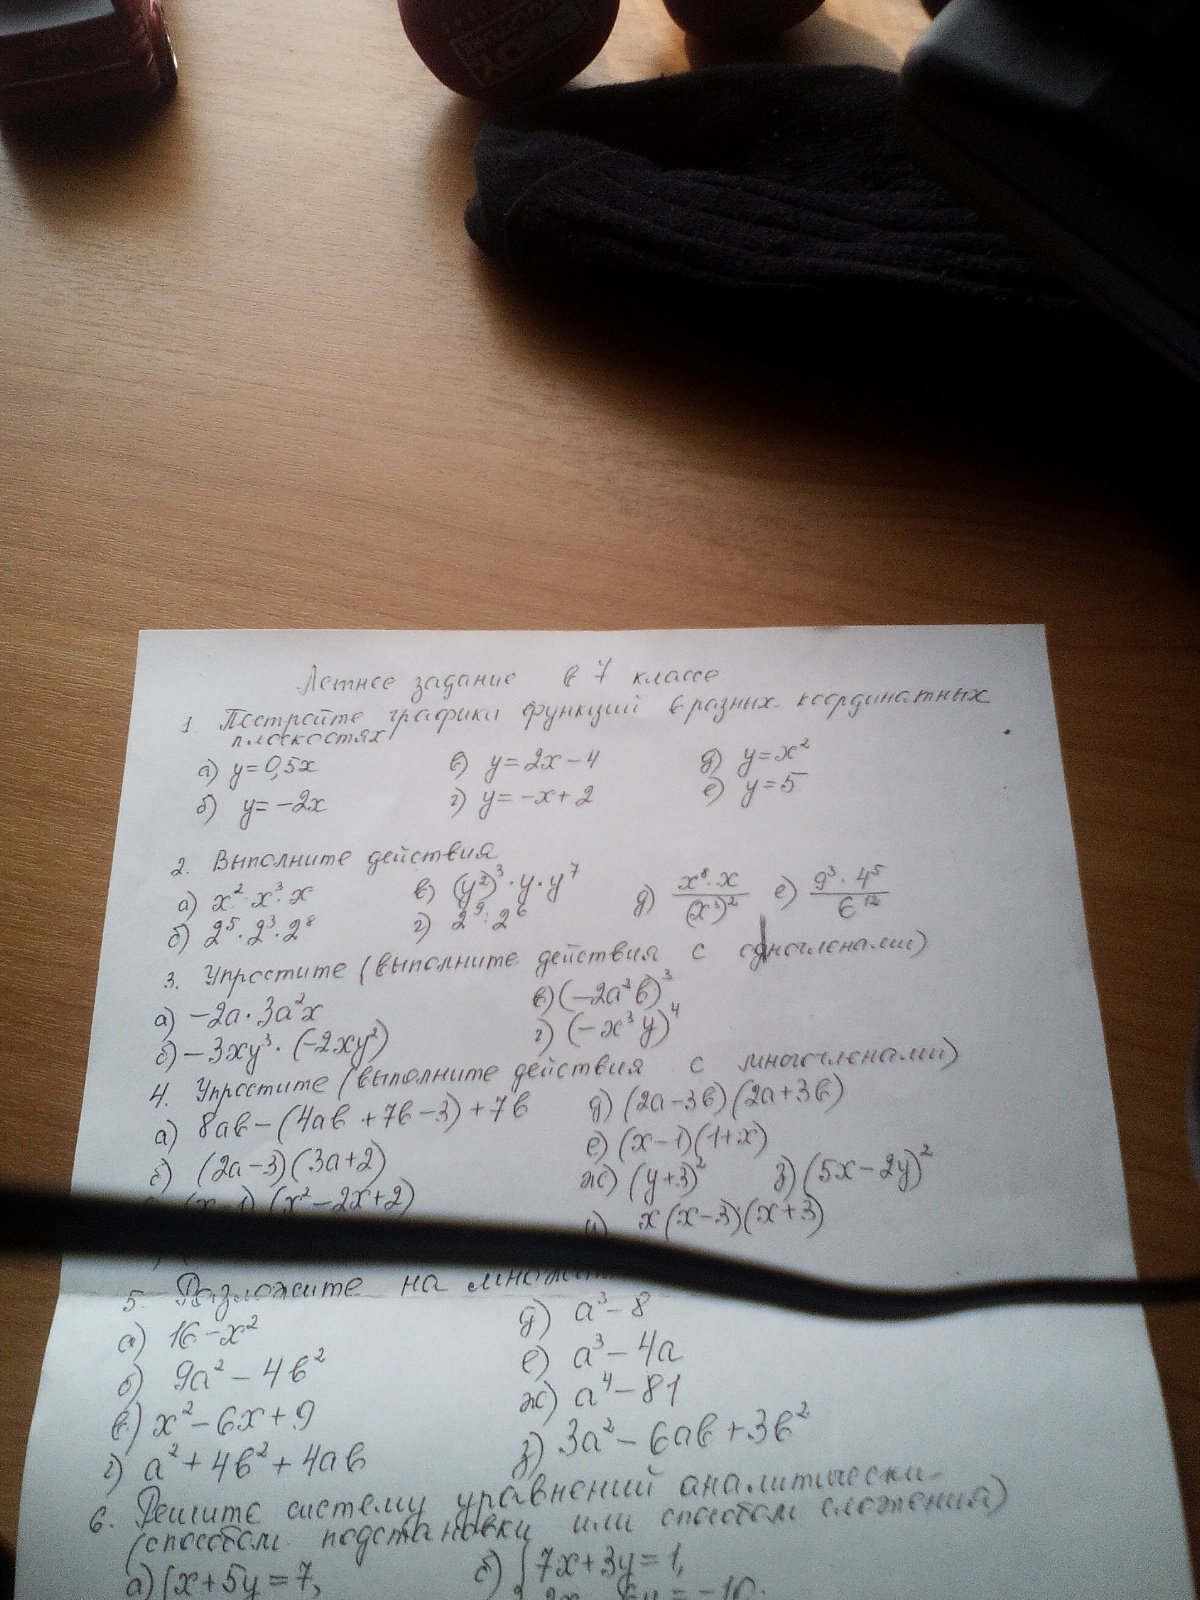 Летнее задание в 7 классе
1. Постройте графики функций в разных координатных
плоскостях
а) y=0,5x в) y=2x-4 д) y=x²
б) y=-2x г) y=-x+2 е) y=5
2. Выполните действия
а) x²·x³·x в) (y²)³·y·y⁷ д) x⁸·x/(x³)² е) 9³·4⁵/6¹²
б) 2⁵·2³·2⁸ г) 2⁹:2⁶
3. Упростите (выполните действия с одночленами)
а) -2a·3a²x в) (-2a²b)³
б) -3xy³·(-2xy²) г) (-x³y)⁴
4. Упростите (выполните действия с многочленами)
а) 8ab-(4ab+7b-3)+7b д) (2a-3b)(2a+3b)
б) (2a-3)(3a+2) е) (x-1)(1+x)
ж) (y+3)² з) (5x-2y)²
(x-1)(x²-2x+2) и) x(x-3)(x+3)
5. Разложите на
а) 16-x² д) a³-8
б) 9a²-4b² е) a³-4a
в) x²-6x+9 ж) a⁴-81
г) a²+4b²+4ab з) 3a²-6ab+3b²
6. Решите систему уравнений аналитически
(способом подстановки или способом сложения)
а) {x+5y=7, б) {7x+3y=1,